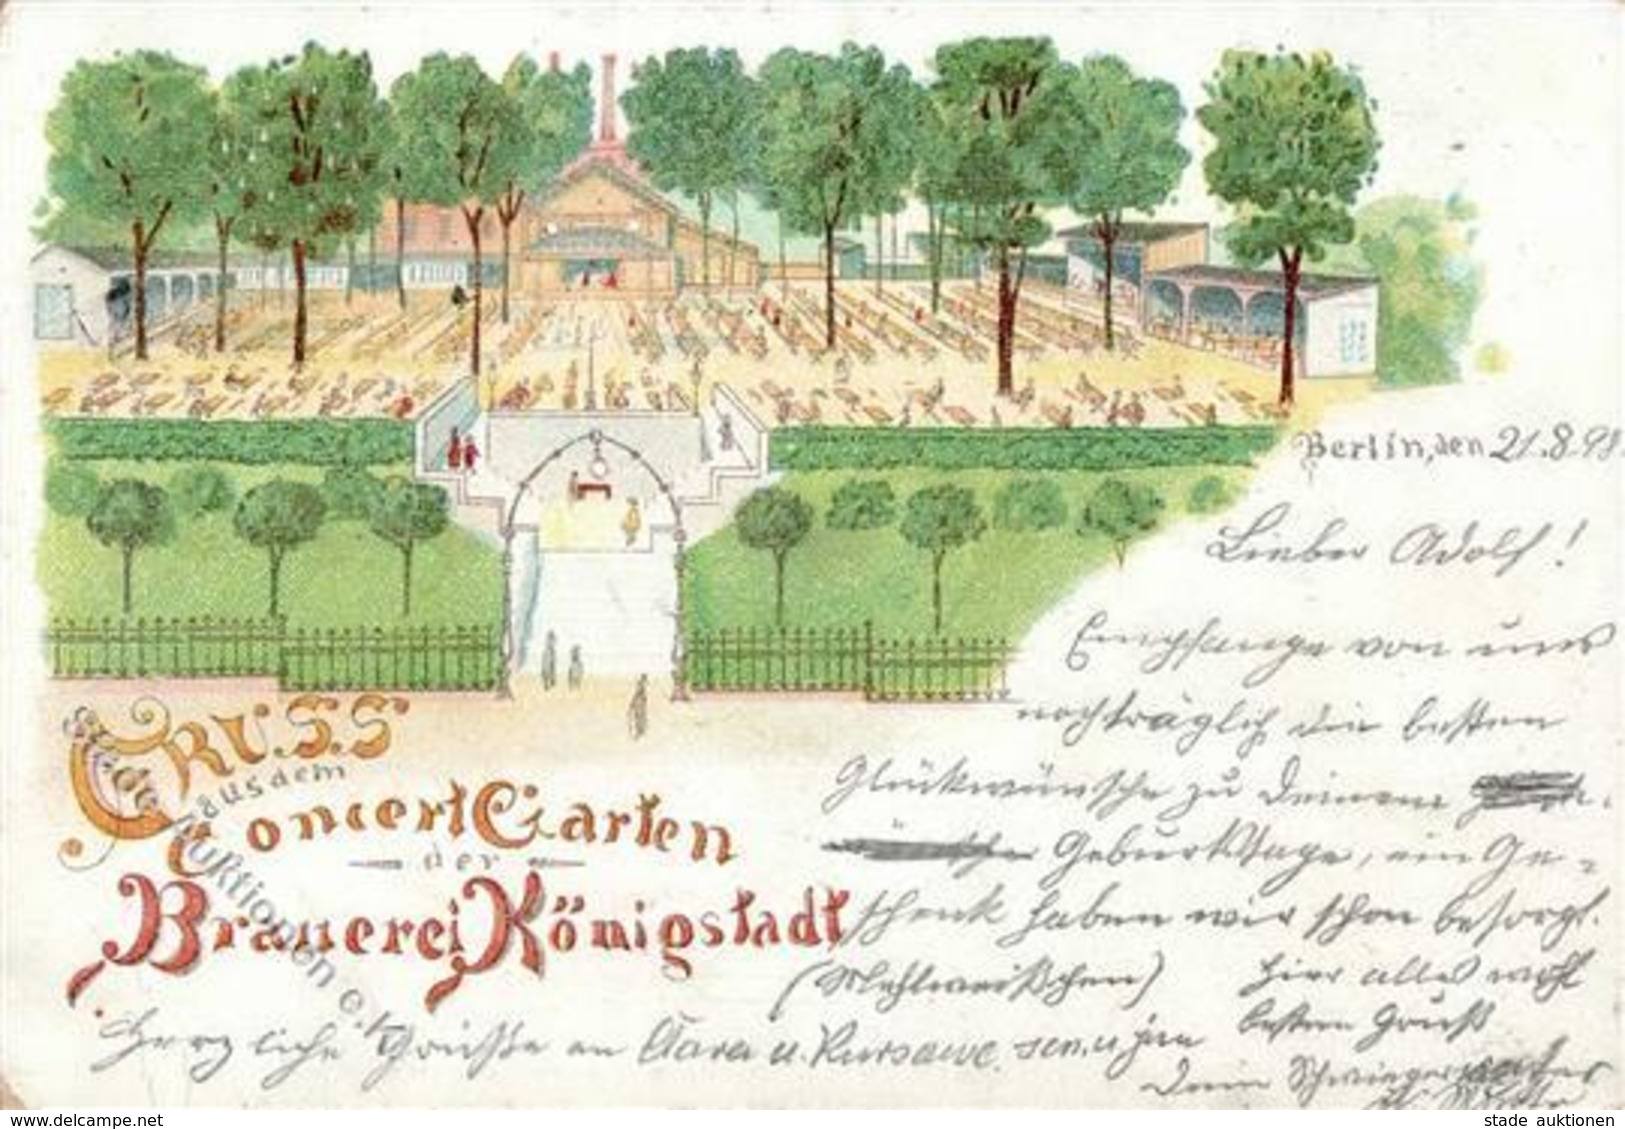 Gruss
aus dem
Concert Garten
der
Brauerei Königstadt
Berlin, den 21.8.98.
Lieber Adolf!
Empfange von uns
nachträglich die besten
Glückwünsche zu Deinem
Geburtstage, ein Ge-
schenk haben wir schon besorgt.
(Mehlweißchen) Hier alles wohl
besten Gruß
Herzliche Grüße an Clara u. Kursawe sen. u. jun
Dein Schwiegervater
stade auktionen e.K.
www.delcampe.net
stade auktionen